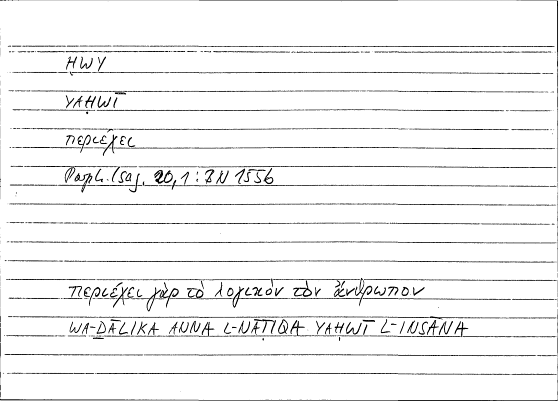 ḤWY
YAḤWĪ
περιέχει
Porph. Isag. 20,1 : BN 155б
περιέχει γὰρ τὸ λογικὸν τὸν ἄνθρωπον
WA-ḎĀLIKA ANNA L-NĀṬIQA YAḤWĪ L-INSĀNA